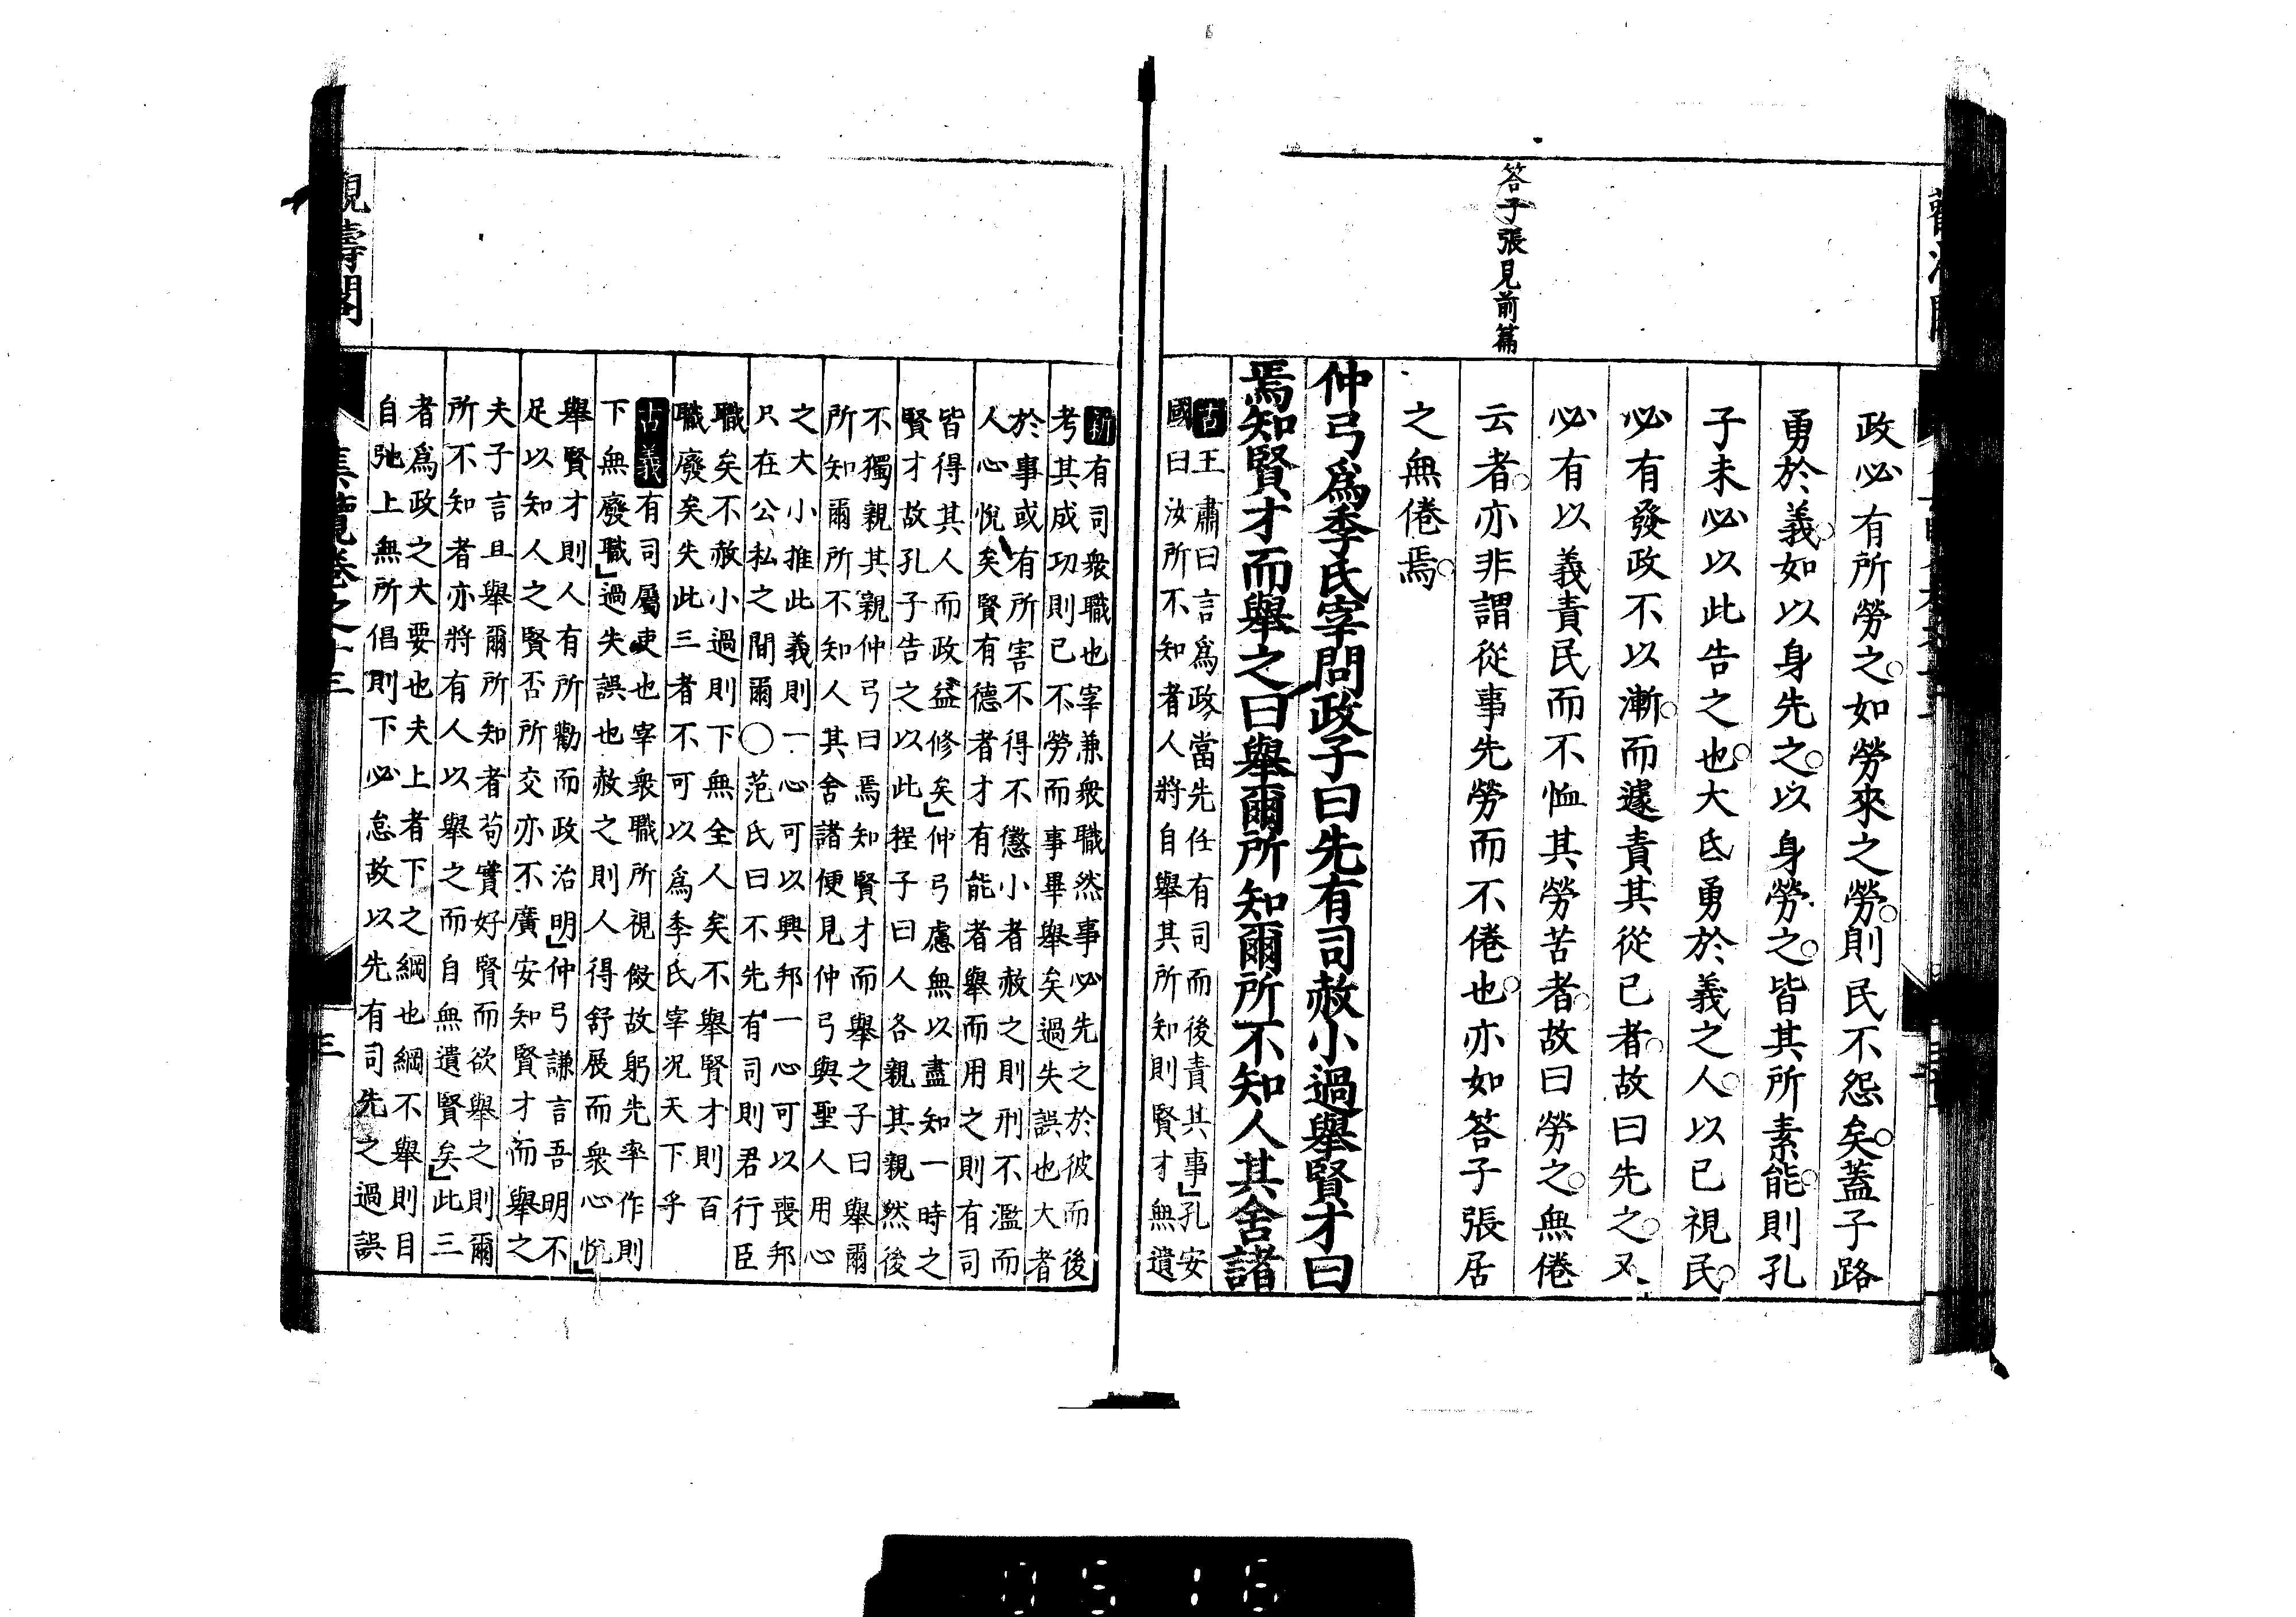 答子張見前篇
政必有所勞之如勞來之勞則民不怨矣蓋子路
勇於義如以身先之以身勞之皆其所素能則孔
子未必以此告之也大氐勇於義之人以己視民
必有發政不以漸而遽責其從己者故曰先之又
必有以義責民而不恤其勞苦者故曰勞之無倦
云者亦非謂從事先勞而不倦也亦如答子張居
之無倦焉
仲弓爲季氏宰問政子曰先有司赦小過舉賢才曰
焉知賢才而舉之曰舉爾所知爾所不知人其舍諸
古王肅曰言爲政當先任有司而後責其事孔安
國曰汝所不知者人將自舉其所知則賢才無遺
新有司衆職也宰兼衆職然事必先之於彼而後
考其成功則己不勞而事畢舉矣過失誤也大者
於事或有所害不得不懲小者赦之則刑不濫而
人心悅矣賢有德者才有能者舉而用之則有司
皆得其人而政益修矣仲弓慮無以盡知一時之
賢才故孔子告之以此程子曰人各親其親然後
不獨親其親仲弓曰焉知賢才而舉之子曰舉爾
所知爾所不知人其舍諸便見仲弓與聖人用心
之大小推此義則一心可以興邦一心可以喪邦
只在公私之間爾○范氏曰不先有司則君行臣
職矣不赦小過則下無全人矣不舉賢才則百
職廢矣失此三者不可以爲季氏宰况天下乎
古義有司屬吏也宰衆職所視傚故躬先率作則
下無廢職過失誤也赦之則人得舒展而衆心悅
舉賢才則人有所勸而政治明仲弓謙言吾明不
足以知人之賢否所交亦不廣安知賢才而舉之
夫子言且舉爾所知者苟實好賢而欲舉之則爾
所不知者亦將有人以舉之而自無遺賢矣此三
者爲政之大要也夫上者下之綱也綱不舉則目
自弛上無所倡則下必怠故以先有司先之過誤
觀濤閣
集覽卷之十三
三
0516